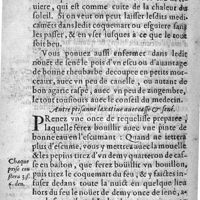 uiere, qui est comme cuite de la chaleur du
soleil. Si on veut on peut laisser lesdits medi-
camẽs dans ledit coquemart ou esguiere sans
les passer, & en vser iusques à ce que le tout
soit beu.
Vous pouuez aussi enfermer dans ledit
noüet de sené le pois d'vn escu ou d'auantage
de bonne rheubarbe decoupee en petits mor-
ceaux, auec vn peu de canelle, ou autant de
bon agaric raspé, auec vn peu de zingembre,
le tout conditionné cõme dessus.
Autre ptisanne laxatiue auec casse & sené.
PRenez vne once de requelisse preparee,
laquelle ferez bouillir auec vne pinte de
bonne eau en l'escumant: Quand ne iettera
plus d'escume, vous y mettrez auec la moüelle
& les pepins tirez d'vn demy quarteron de cas-
se en baston, que ferez bouillir vn bouillon,
puis tirez le coquemart du feu, & tandis qu'il
est chaud mettez dedans toute la nuict en quelque lieu
hors du feu le noüet de demy once de sené, a-
Chaque
prise cou
stera 5. s.
6. den.